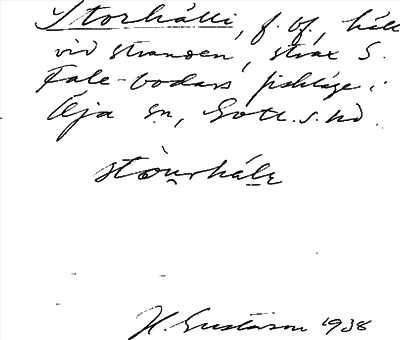 Storhälli, f. bf., häll
vid stranden, strax S.
Fale-bodars fiskläge i
Öja sn, Gotl. s. hd.
stòu̯rhále
H. Gustavson 1938